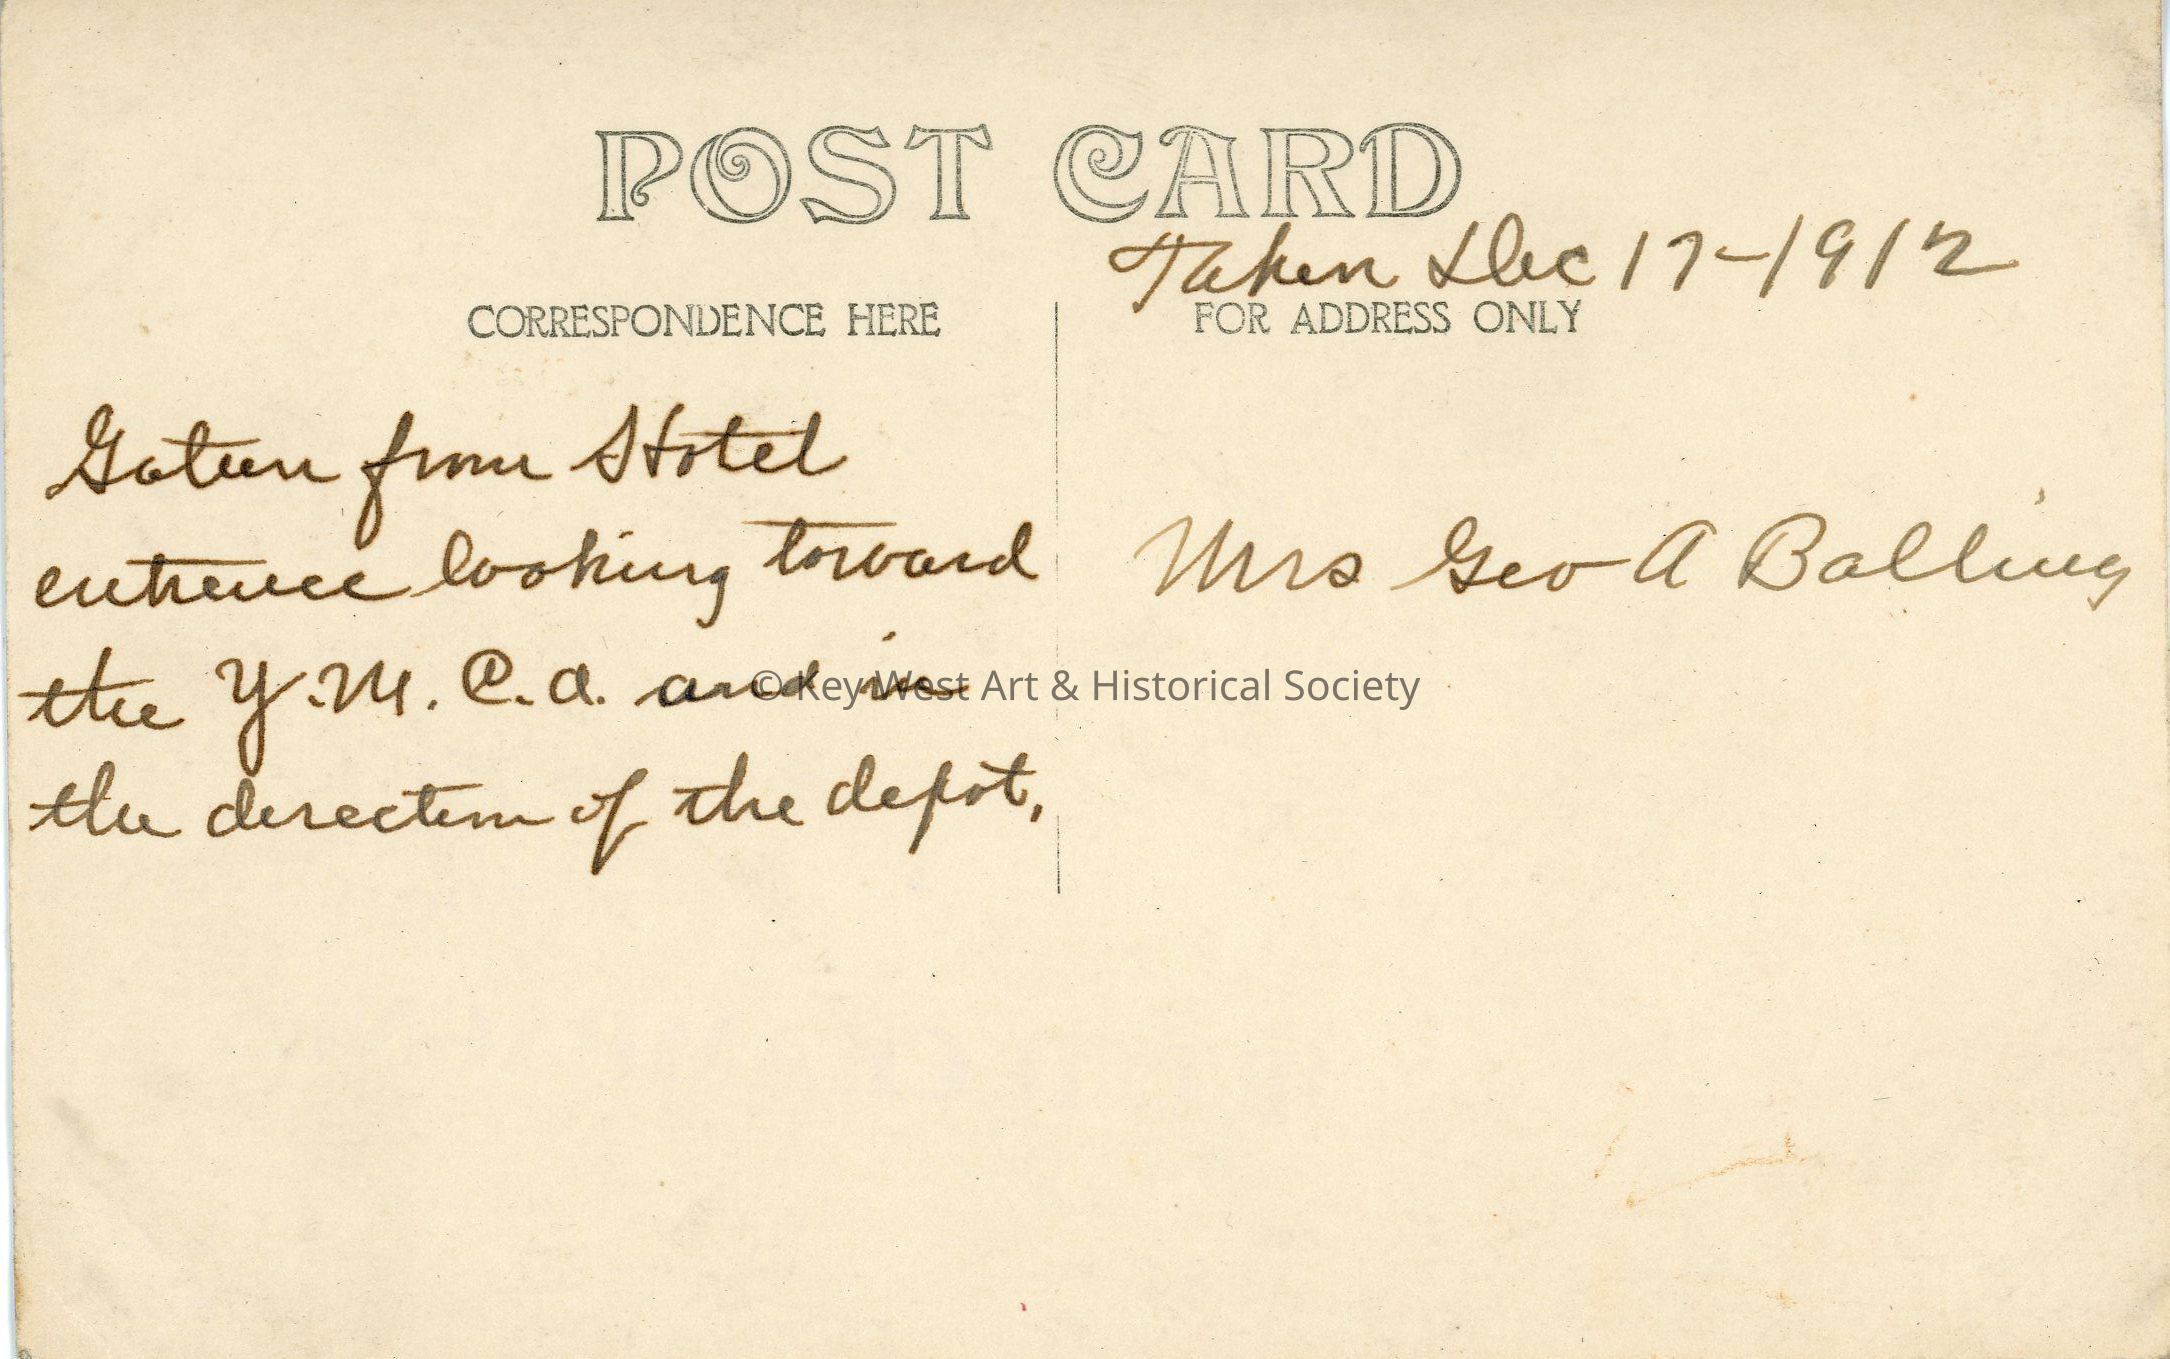 POST CARD
Taken Dec 17-1912
CORRESPONDENCE HERE
FOR ADDRESS ONLY
Gatun from Hotel
entrance looking toward
the Y.M.C.A. and in
the direction of the depot,
Mrs Geo A Balling
© Key West Art & Historical Society